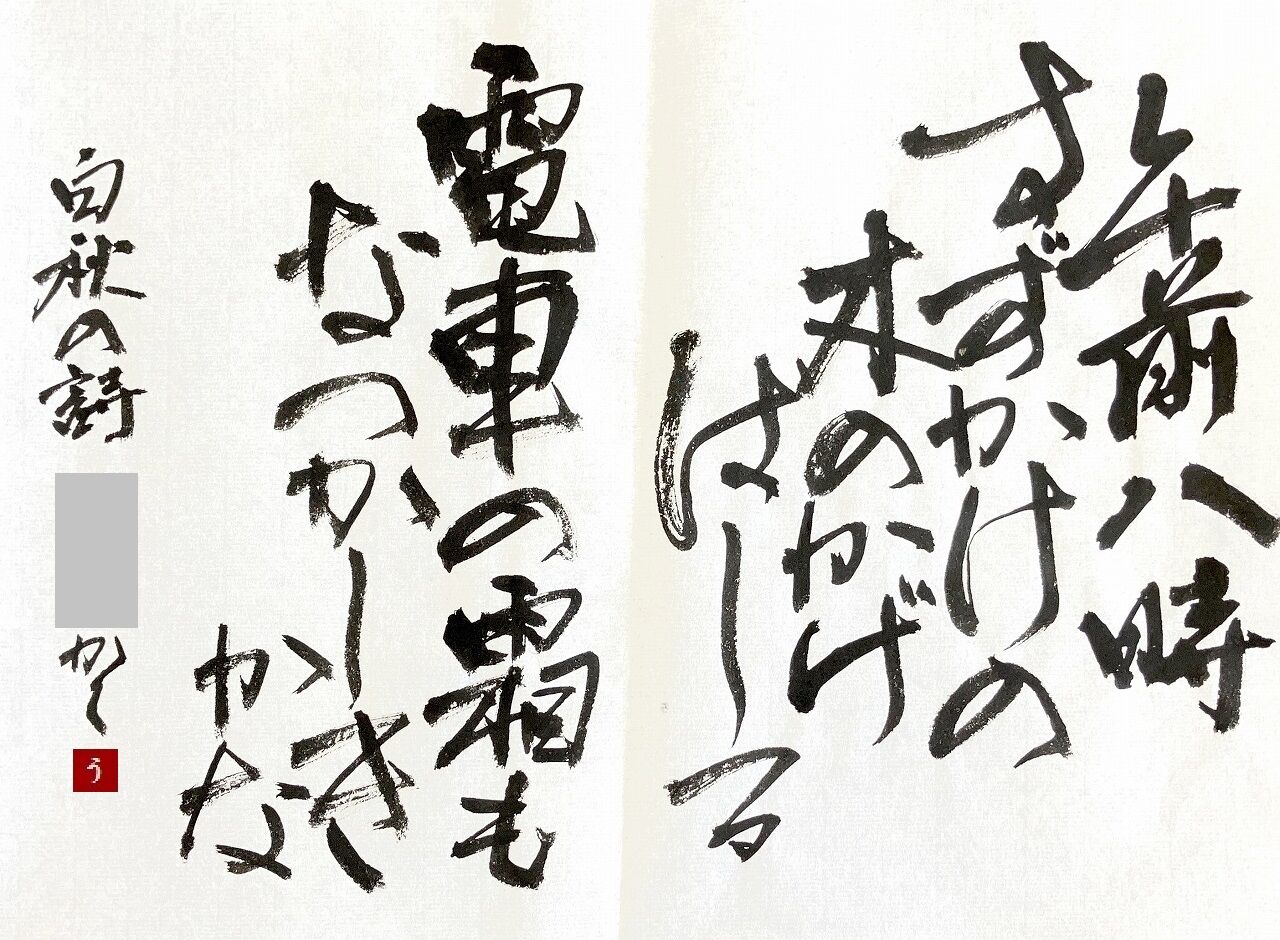 午前八時
すずかけの
木のかげ
はしる
電車の霜も
なつかしき
かな
白秋の詩
かく
う